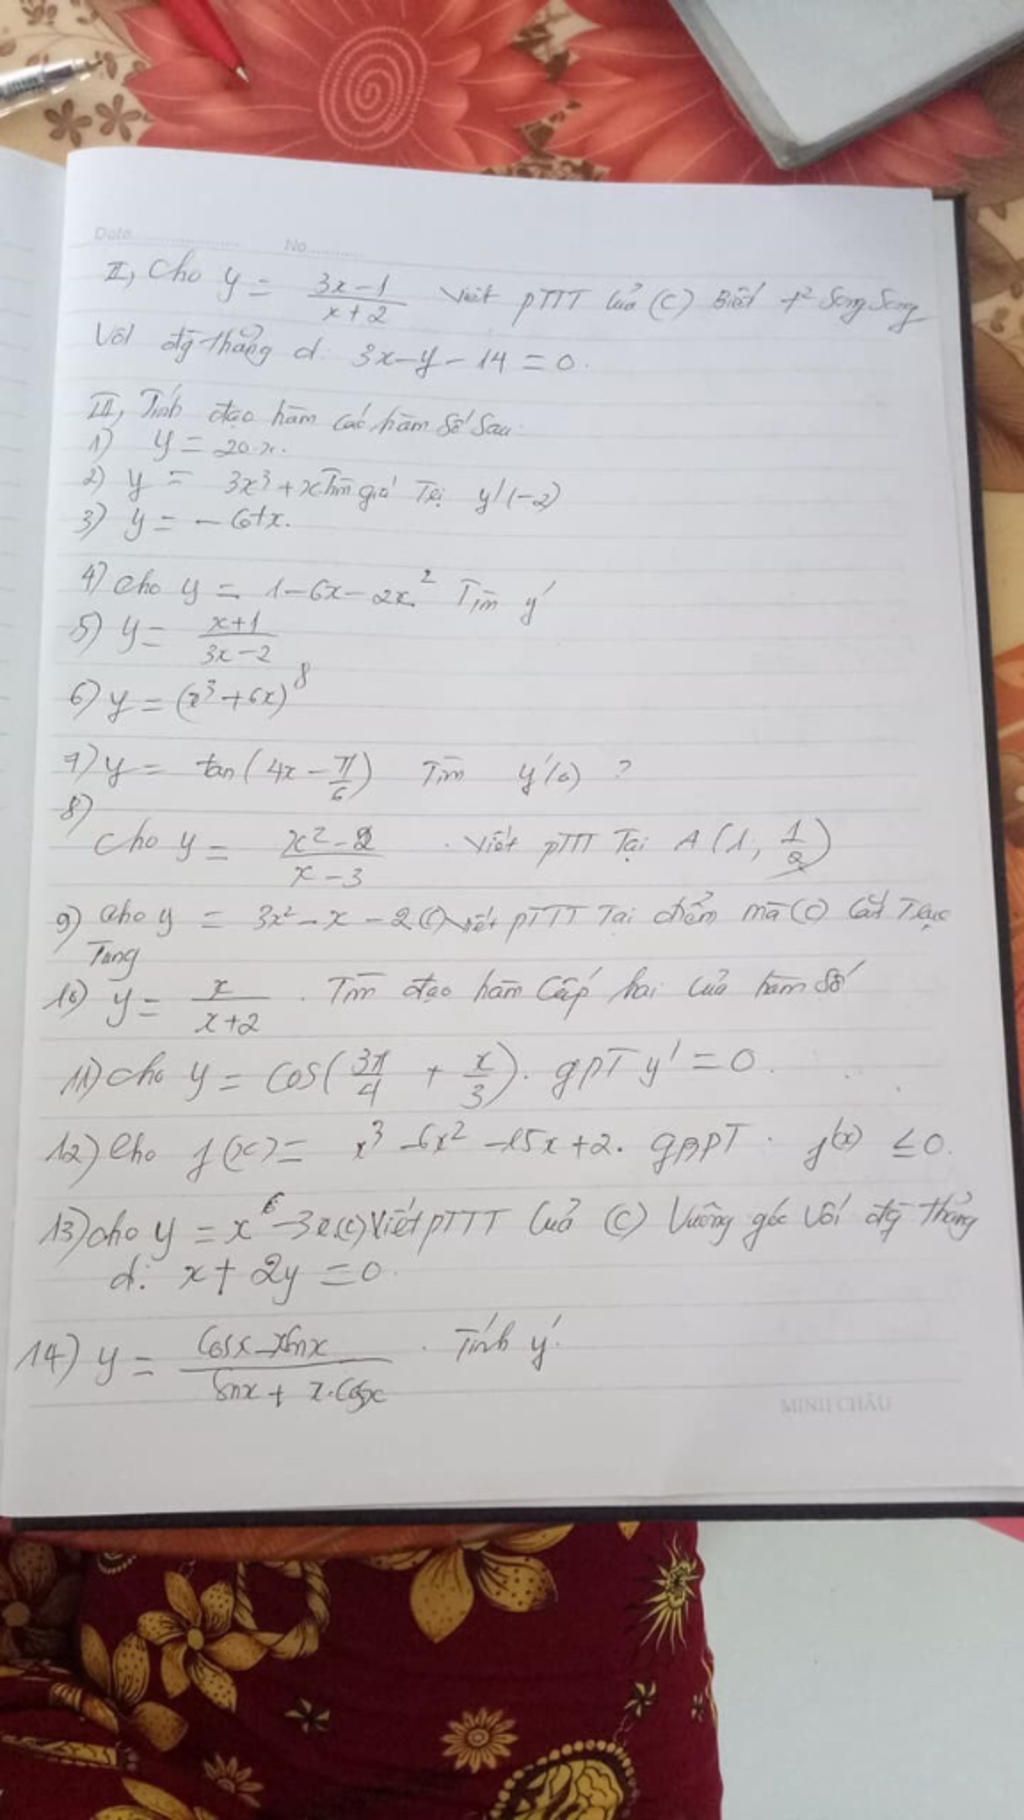 Date No
II, Cho y = 3x-1 / x+2 Viết PTTT của (C) Biết t² Song Song
Với đg thẳng d: 3x-y-14=0.
III, Tính đạo hàm các hàm số sau:
1) y = 20x.
2) y = 3x³+x Tìm giá Trị y'(-2)
3) y = -Cotx.
4) Cho y = 1-6x-2x² Tìm y'
5) y = x+1 / 3x-2
6) y = (x³+6x)⁸
7) y = tan(4x - π/6) Tìm y'(0) ?
8)
Cho y = x²-2 / x-3 . Viết PTTT Tại A(1, 1/2)
9) Cho y = 3x²-x-2(C) Viết PTTT Tại điểm mà (C) Cắt Trục
Tung
10) y = x / x+2 . Tìm đạo hàm Cấp hai của hàm Số
11) Cho y = Cos(3π/4 + x/3). gPT y' = 0.
12) Cho f(x) = x³-6x²-15x+2. gBPT. f'(x) ≤ 0.
13) Cho y = x⁶-3 (C) Viết PTTT Của (C) Vuông góc Với đg thẳng
d: x+2y=0.
14) y = Cosx-xSinx / Sinx + x.Cosx . Tính y'.
MINH CHÂU